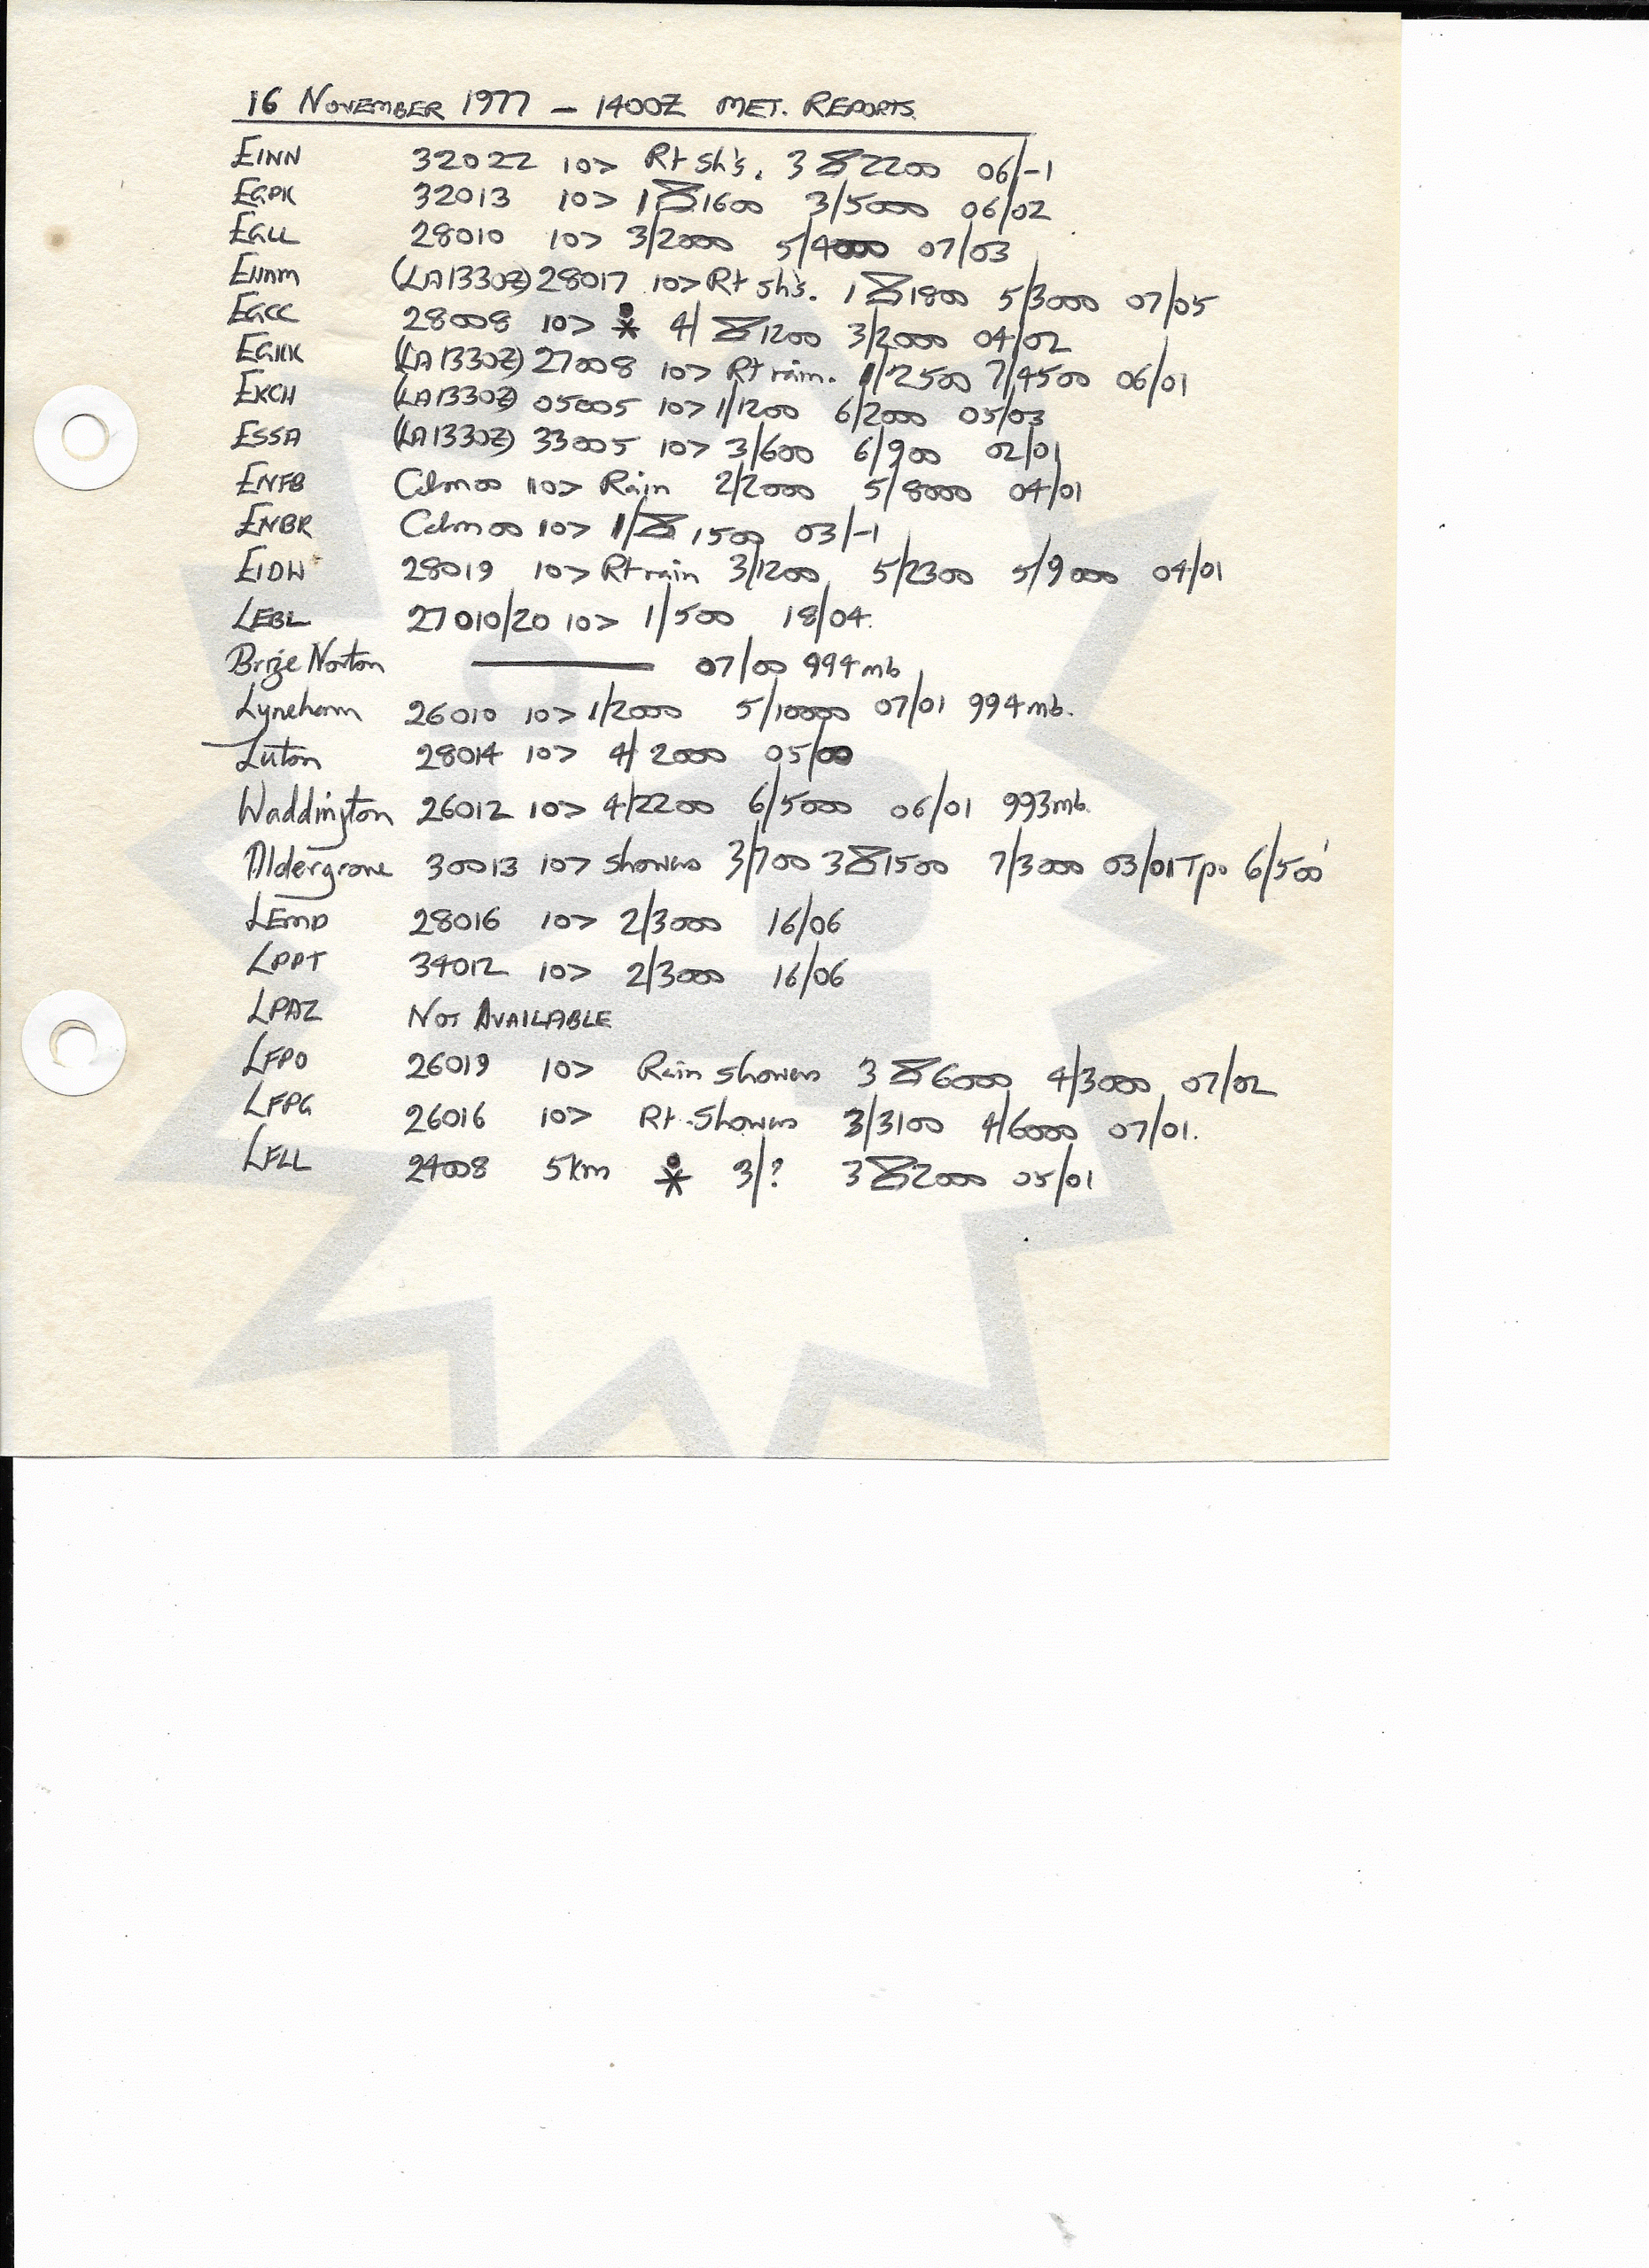 16 NOVEMBER 1977 – 1400Z MET. REPORTS.
EINN 32022 10> Rt Sh's. 3 2200 06/-1
EGPK 32013 10> 1 1600 3/5000 06/02
EGLL 28010 10> 3/2000 5/4000 07/03
(LA1330Z) 28017 10> Rt sh's. 1 1800 5/3000 07/05
EGCC 28008 10> 4/ 1200 3/2000 04/02
EGKK (LA1330Z) 27008 10> Rt rain. 1/2500 7/4500 06/01
EKCH (LA1330Z) 05005 10> 1/1200 6/2000 05/03
ESSA (LA1330Z) 33005 10> 3/600 6/900 02/01
ENFB Calm 00 10> Rain 2/2000 5/8000 04/01
ENBR Calm 00 10> 1/ 1500 03/-1
EIDW 28019 10> Rt rain 3/1200 5/2300 5/9000 04/01
LEBL 27010/20 10> 1/500 18/04.
Brize Norton ——— 07/00 994mb
Lyneham 26010 10> 1/2000 5/10000 07/01 994mb.
Luton 28014 10> 4/2000 05/00
Waddington 26012 10> 4/2200 6/5000 06/01 993mb.
Aldergrove 30013 10> Showers 3/700 3 1500 7/3000 03/01 Tpo 6/500'
LEMD 28016 10> 2/3000 16/06
LPPT 34012 10> 2/3000 16/06
LPAZ NOT AVAILABLE
LFPO 26019 10> Rain Showers 3 6000 4/3000 07/02
LFPG 26016 10> Rt-Showers 3/3100 4/6000 07/01.
LFLL 24008 5km 3/? 3 2000 05/01